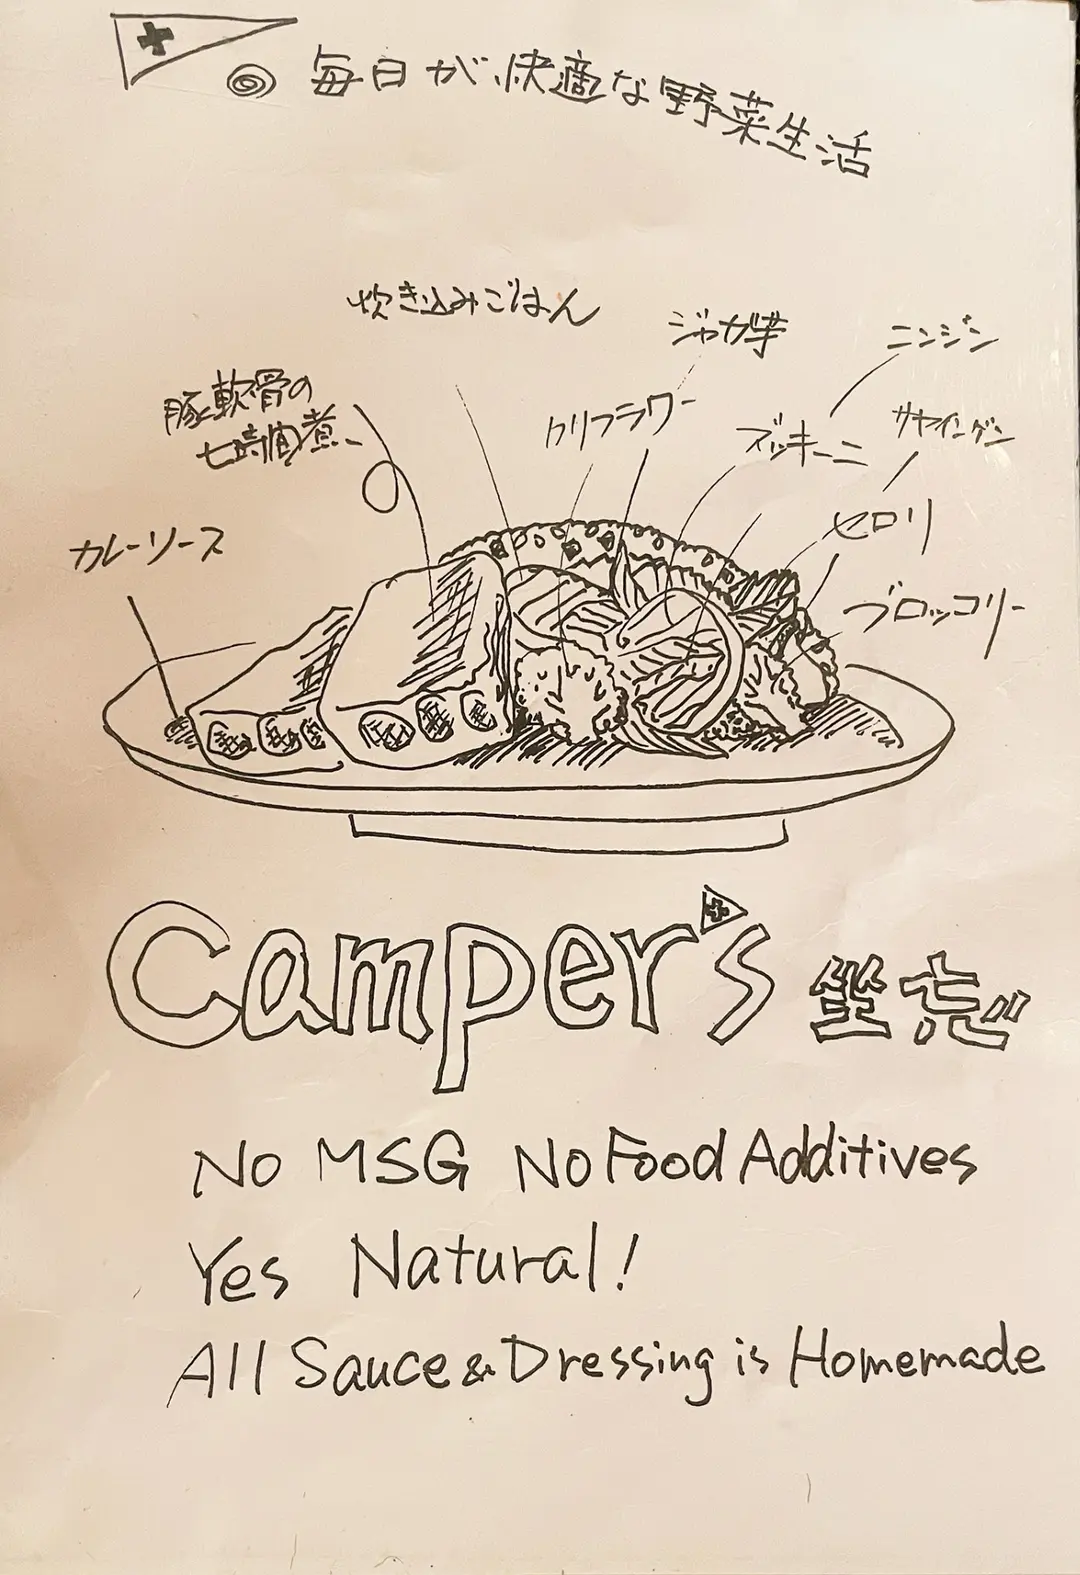 毎日が、快適な野菜生活
炊き込みごはん
ジャガ芋
ニンジン
豚軟骨の
七時間煮、
カリフラワー
ズッキーニ
サヤインゲン
セロリ
カレーソース
ブロッコリー
Camper's 坐忘
No MSG No Food Additives
Yes Natural!
All Sauce & Dressing is Homemade